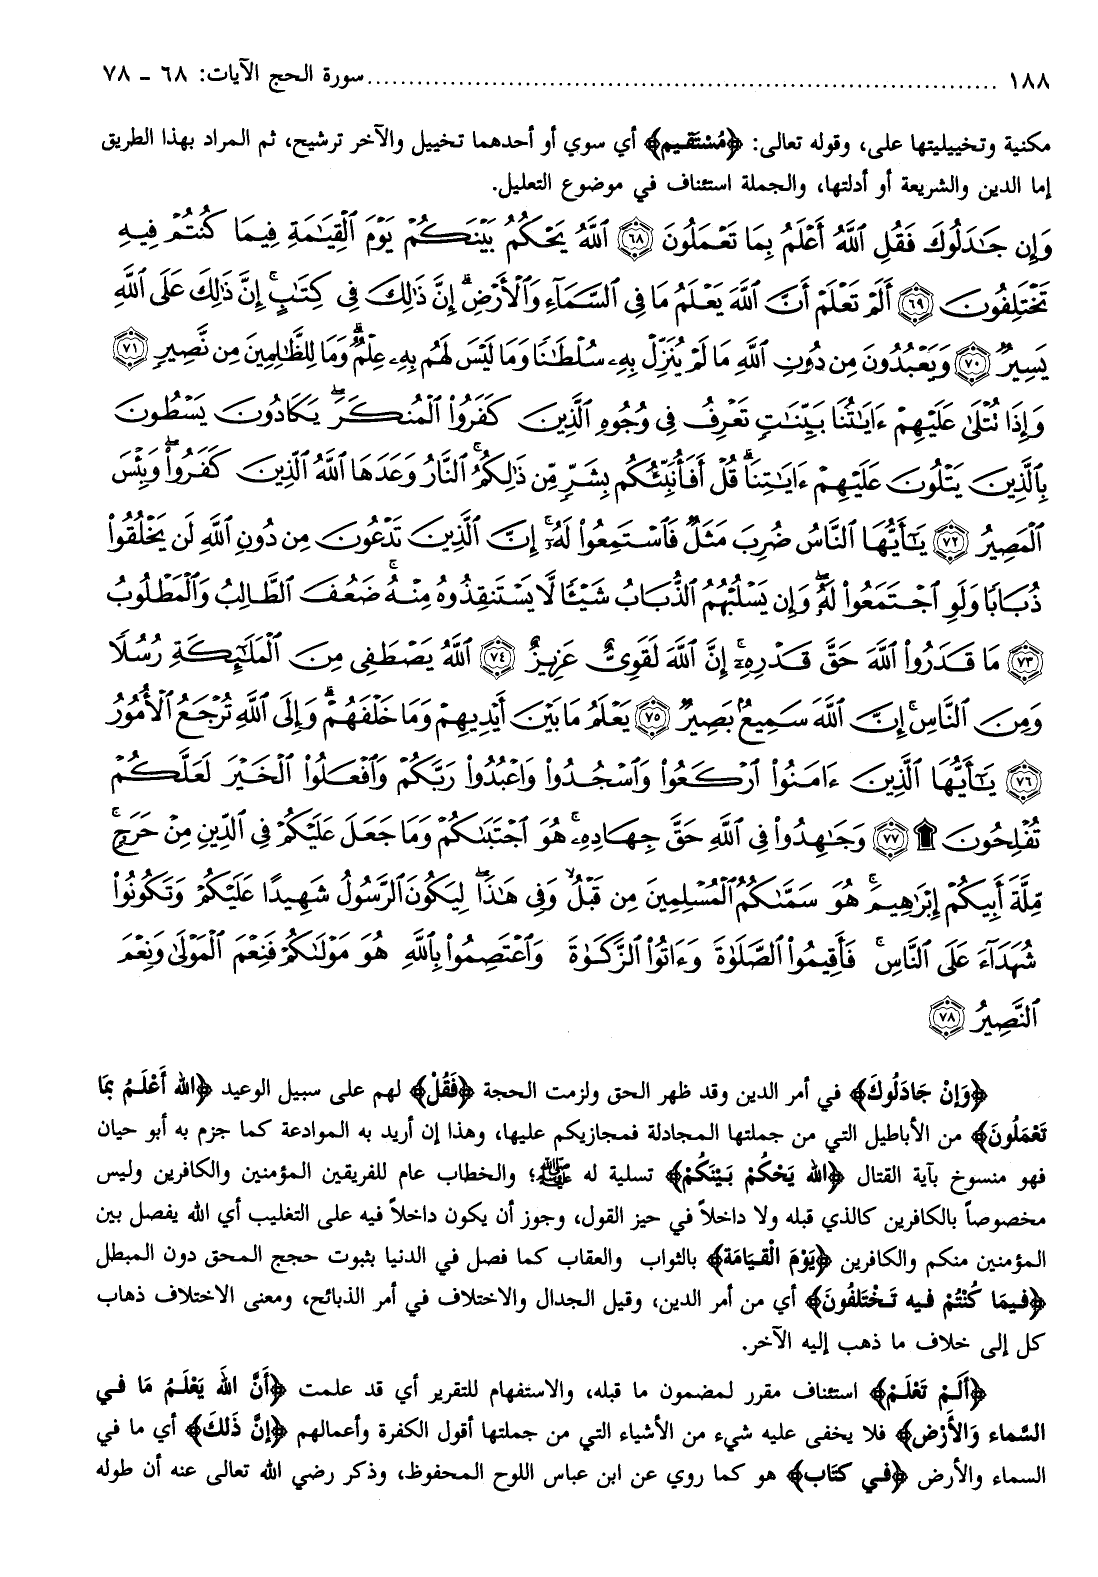 ١٨٨ ........................................................ سورة الحج الآيات: ٦٨ - ٧٨
مكنية وتخييليتها على، وقوله تعالى: ﴿مُسْتَقيم﴾ أي سوي أو أحدهما تخييل والآخر ترشيح، ثم المراد بهذا الطريق
إما الدين والشريعة أو أدلتها، والجملة استئناف في موضوع التعليل.
وَإِن جَٰدَلُوكَ فَقُلِ ٱللَّهُ أَعْلَمُ بِمَا تَعْمَلُونَ ﴿٦٨﴾ ٱللَّهُ يَحْكُمُ بَيْنَكُمْ يَوْمَ ٱلْقِيَٰمَةِ فِيمَا كُنتُمْ فِيهِ
تَخْتَلِفُونَ ﴿٦٩﴾ أَلَمْ تَعْلَمْ أَنَّ ٱللَّهَ يَعْلَمُ مَا فِى ٱلسَّمَآءِ وَٱلْأَرْضِ ۗ إِنَّ ذَٰلِكَ فِى كِتَٰبٍ ۚ إِنَّ ذَٰلِكَ عَلَى ٱللَّهِ
يَسِيرٌ ﴿٧٠﴾ وَيَعْبُدُونَ مِن دُونِ ٱللَّهِ مَا لَمْ يُنَزِّلْ بِهِۦ سُلْطَٰنًا وَمَا لَيْسَ لَهُم بِهِۦ عِلْمٌ ۗ وَمَا لِلظَّٰلِمِينَ مِن نَّصِيرٍ ﴿٧١﴾
وَإِذَا تُتْلَىٰ عَلَيْهِمْ ءَايَٰتُنَا بَيِّنَٰتٍ تَعْرِفُ فِى وُجُوهِ ٱلَّذِينَ كَفَرُوا۟ ٱلْمُنكَرَ ۖ يَكَادُونَ يَسْطُونَ
بِٱلَّذِينَ يَتْلُونَ عَلَيْهِمْ ءَايَٰتِنَا ۗ قُلْ أَفَأُنَبِّئُكُم بِشَرٍّ مِّن ذَٰلِكُمُ ۚ ٱلنَّارُ وَعَدَهَا ٱللَّهُ ٱلَّذِينَ كَفَرُوا۟ ۖ وَبِئْسَ
ٱلْمَصِيرُ ﴿٧٢﴾ يَٰٓأَيُّهَا ٱلنَّاسُ ضُرِبَ مَثَلٌ فَٱسْتَمِعُوا۟ لَهُۥٓ ۚ إِنَّ ٱلَّذِينَ تَدْعُونَ مِن دُونِ ٱللَّهِ لَن يَخْلُقُوا۟
ذُبَابًا وَلَوِ ٱجْتَمَعُوا۟ لَهُۥ ۖ وَإِن يَسْلُبْهُمُ ٱلذُّبَابُ شَيْـًٔا لَّا يَسْتَنقِذُوهُ مِنْهُ ۚ ضَعُفَ ٱلطَّالِبُ وَٱلْمَطْلُوبُ
﴿٧٣﴾ مَا قَدَرُوا۟ ٱللَّهَ حَقَّ قَدْرِهِۦٓ ۚ إِنَّ ٱللَّهَ لَقَوِىٌّ عَزِيزٌ ﴿٧٤﴾ ٱللَّهُ يَصْطَفِى مِنَ ٱلْمَلَٰٓئِكَةِ رُسُلًا
وَمِنَ ٱلنَّاسِ ۚ إِنَّ ٱللَّهَ سَمِيعٌۢ بَصِيرٌ ﴿٧٥﴾ يَعْلَمُ مَا بَيْنَ أَيْدِيهِمْ وَمَا خَلْفَهُمْ ۗ وَإِلَى ٱللَّهِ تُرْجَعُ ٱلْأُمُورُ
﴿٧٦﴾ يَٰٓأَيُّهَا ٱلَّذِينَ ءَامَنُوا۟ ٱرْكَعُوا۟ وَٱسْجُدُوا۟ وَٱعْبُدُوا۟ رَبَّكُمْ وَٱفْعَلُوا۟ ٱلْخَيْرَ لَعَلَّكُمْ
تُفْلِحُونَ ۩ ﴿٧٧﴾ وَجَٰهِدُوا۟ فِى ٱللَّهِ حَقَّ جِهَادِهِۦ ۚ هُوَ ٱجْتَبَىٰكُمْ وَمَا جَعَلَ عَلَيْكُمْ فِى ٱلدِّينِ مِنْ حَرَجٍ ۚ
مِّلَّةَ أَبِيكُمْ إِبْرَٰهِيمَ ۚ هُوَ سَمَّىٰكُمُ ٱلْمُسْلِمِينَ مِن قَبْلُ وَفِى هَٰذَا لِيَكُونَ ٱلرَّسُولُ شَهِيدًا عَلَيْكُمْ وَتَكُونُوا۟
شُهَدَآءَ عَلَى ٱلنَّاسِ ۚ فَأَقِيمُوا۟ ٱلصَّلَوٰةَ وَءَاتُوا۟ ٱلزَّكَوٰةَ وَٱعْتَصِمُوا۟ بِٱللَّهِ هُوَ مَوْلَىٰكُمْ فَنِعْمَ ٱلْمَوْلَىٰ وَنِعْمَ
ٱلنَّصِيرُ ﴿٧٨﴾
﴿وَإِنْ جَادَلُوكَ﴾ في أمر الدين وقد ظهر الحق ولزمت الحجة ﴿فَقُلْ﴾ لهم على سبيل الوعيد ﴿الله أَعْلَمُ بِمَا
تَعْمَلُونَ﴾ من الأباطيل التي من جملتها المجادلة فمجازيكم عليها، وهذا إن أريد به الموادعة كما جزم به أبو حيان
فهو منسوخ بآية القتال ﴿الله يَحْكُمُ بَيْنَكُمْ﴾ تسلية له ﷺ؛ والخطاب عام للفريقين المؤمنين والكافرين وليس
مخصوصاً بالكافرين كالذي قبله ولا داخلاً في حيز القول، وجوز أن يكون داخلاً فيه على التغليب أي الله يفصل بين
المؤمنين منكم والكافرين ﴿يَوْمَ الْقيَامَة﴾ بالثواب والعقاب كما فصل في الدنيا بثبوت حجج المحق دون المبطل
﴿فيمَا كُنْتُمْ فيه تَخْتَلفُونَ﴾ أي من أمر الدين، وقيل الجدال والاختلاف في أمر الذبائح، ومعنى الاختلاف ذهاب
كل إلى خلاف ما ذهب إليه الآخر.
﴿أَلَمْ تَعْلَمْ﴾ استئناف مقرر لمضمون ما قبله، والاستفهام للتقرير أي قد علمت ﴿أَنَّ اللهَ يَعْلَمُ مَا في
السَّماء وَالأَرْض﴾ فلا يخفى عليه شيء من الأشياء التي من جملتها أقول الكفرة وأعمالهم ﴿إنَّ ذَلكَ﴾ أي ما في
السماء والأرض ﴿في كتَاب﴾ هو كما روي عن ابن عباس اللوح المحفوظ، وذكر رضي الله تعالى عنه أن طوله